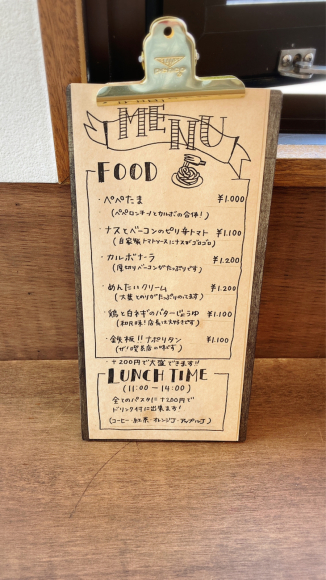 MENU
FOOD
・ペペたま ¥1.000
(ペペロンチーノとカルボの合体！)
・ナスとベーコンのピリ辛トマト ¥1.100
(自家製トマトソースにナスがゴロゴロ)
・カルボナーラ ¥1.200
(厚切りベーコンがたっぷりです)
・めんたいクリーム ¥1.200
(大葉とのりがたっぷりのってます)
・鶏と白ネギのバターじょうゆ ¥1.100
(和風味！店長は大好きです)
・鉄板!!ナポリタン ¥1.100
(ザ！喫茶店の味です)
・+200円で大盛できます!!
LUNCH TIME
(11:00 - 14:00)
全てのパスタに+200円で
ドリンク付に出来ます！
(コーヒー・紅茶・オレンジJ・アップルJ)